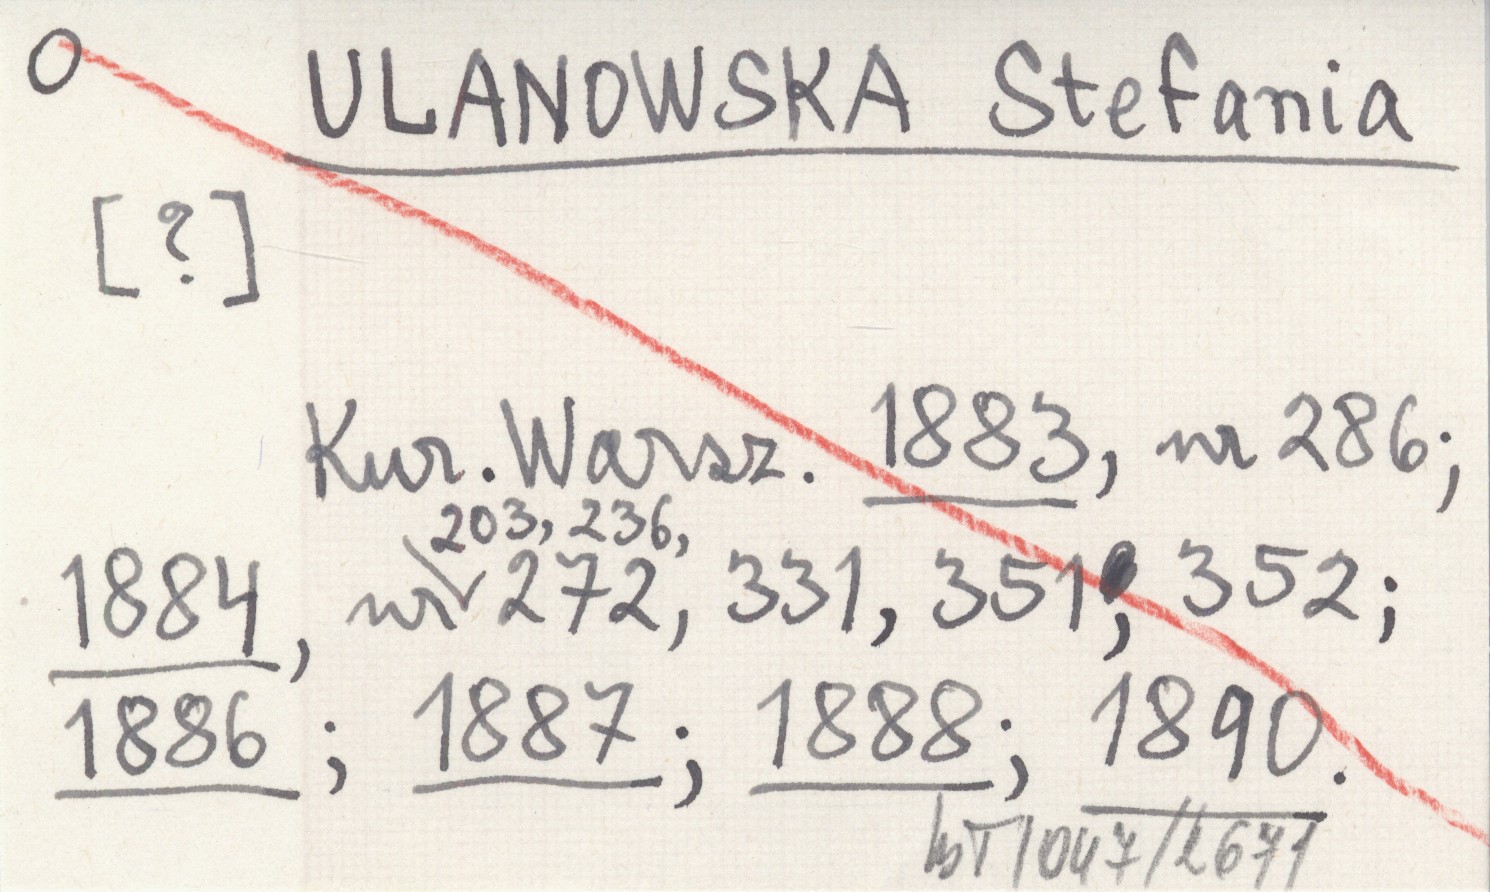 O ULANOWSKA Stefania
[?]
Kur. Warsz. 1883, nr 286;
203, 236,
1884, nr 272, 331, 351, 352;
1886; 1887; 1888; 1890.
1047/2671